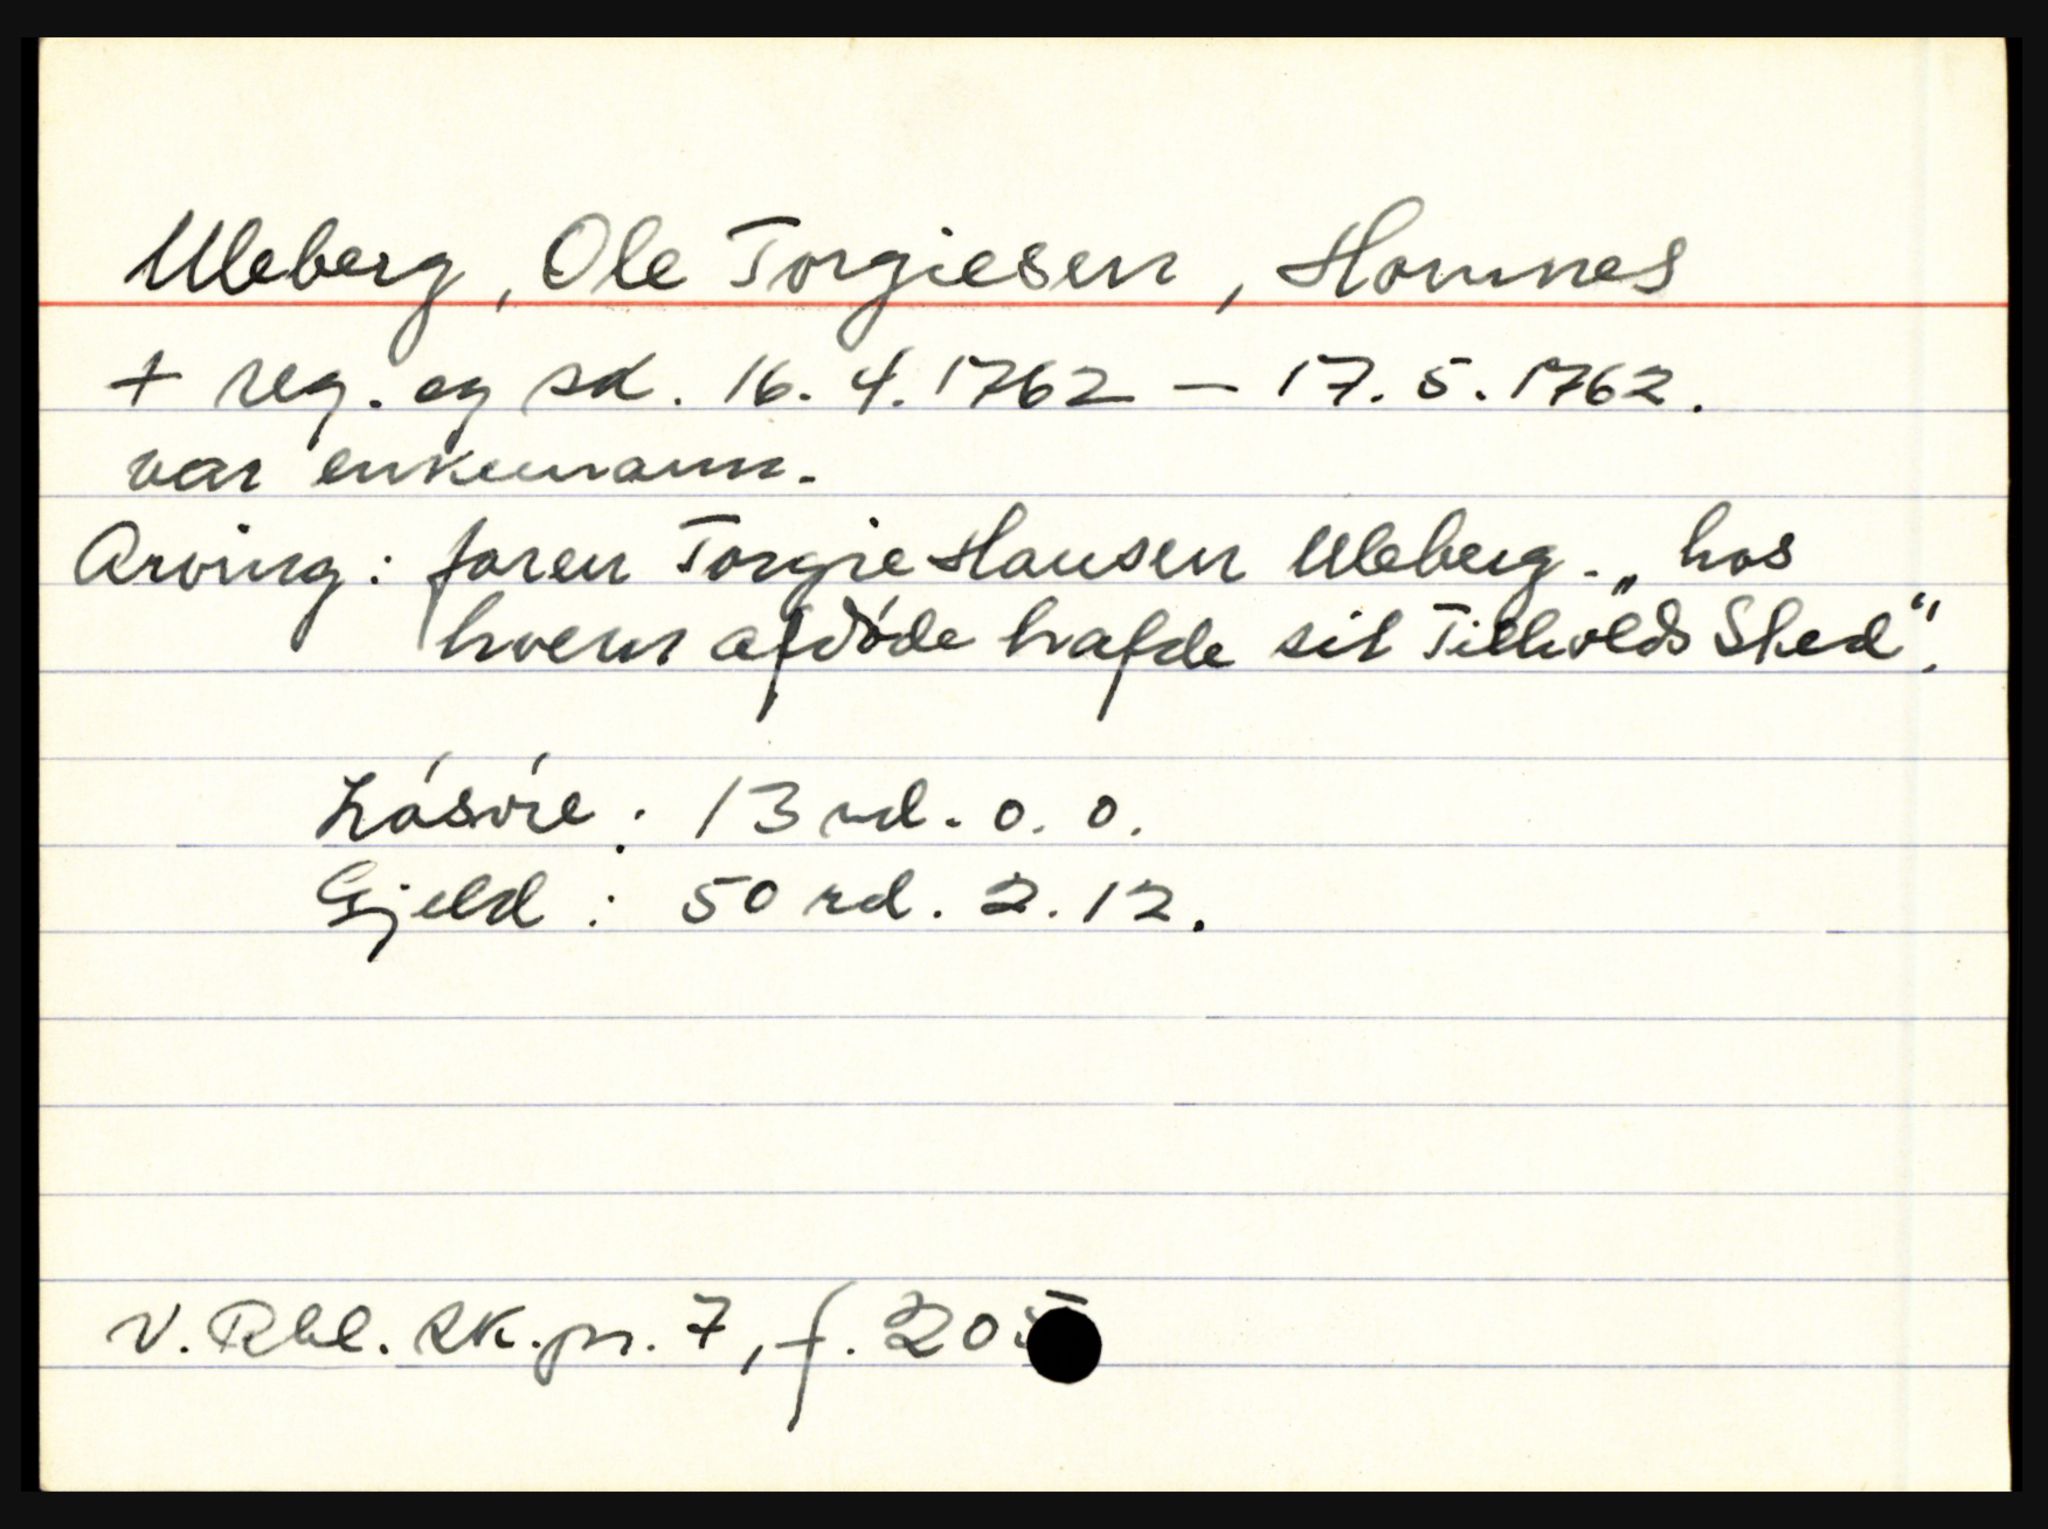 Uleberg, Ole Torgiesen, Homnes
+ reg. og sk. 16. 4. 1762 – 17. 5. 1762.
var enkemann.
Arving: faren Torgie Hansen Uleberg. „hos
hvem afdøde hafde sit Tilholds Sted“.
Løsøre: 13 rd. 0. 0.
Gjeld: 50 rd. 2. 12.
V. Rbl. sk.pr. 7, f. 205